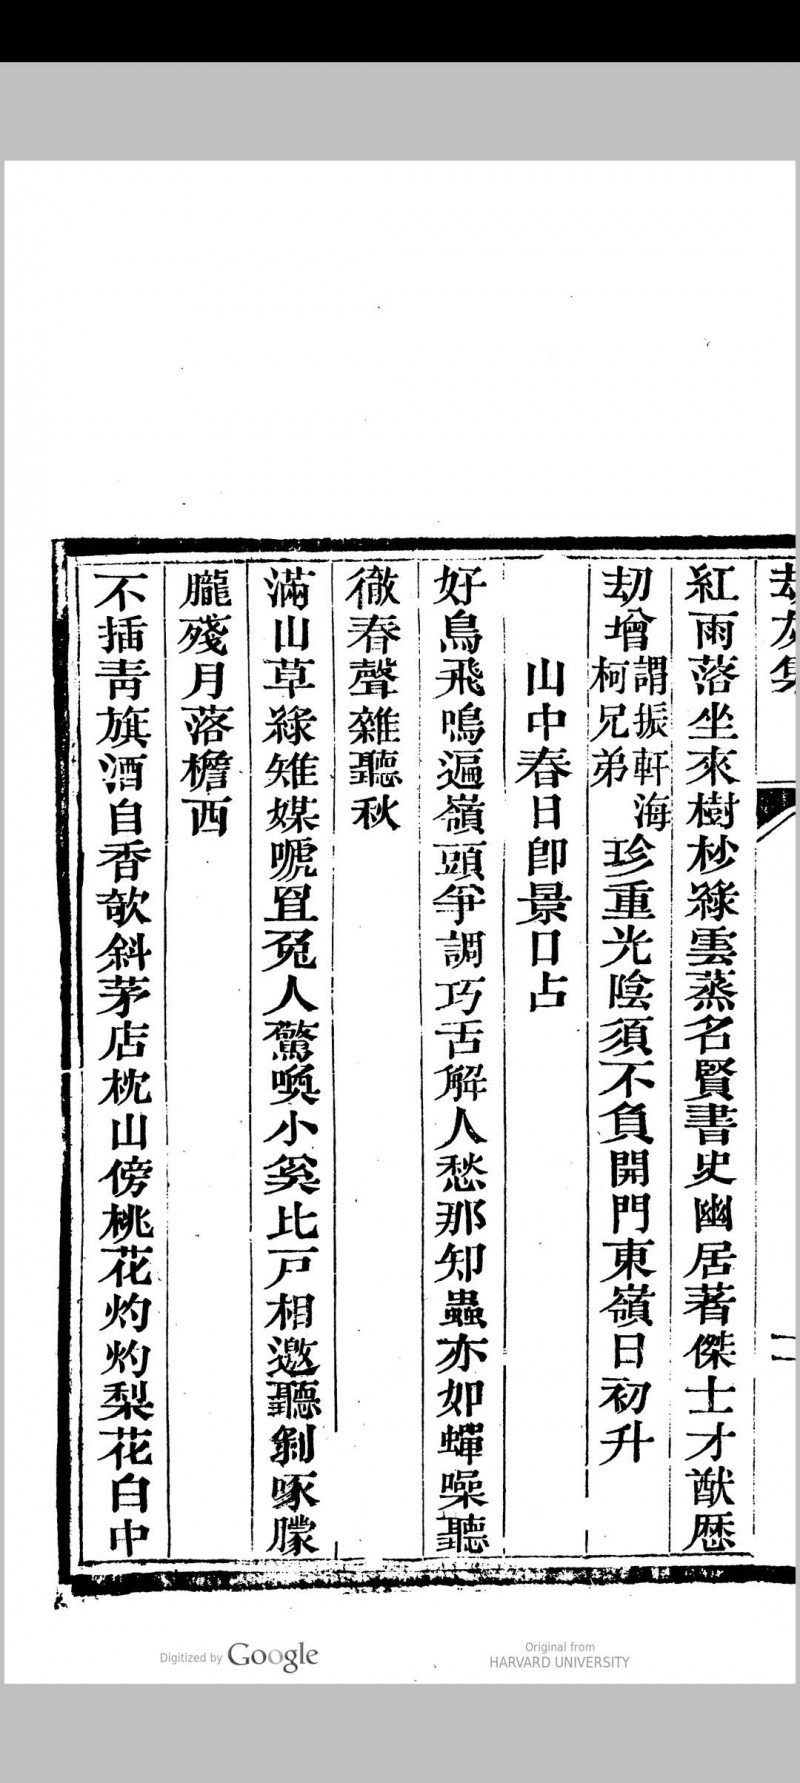 劫灰集
二
紅雨落坐來樹杪綠雲蒸名賢書史幽居著傑士才猷歷
劫增謂振軒海柯兄弟珍重光陰須不負開門東嶺日初升
山中春日即景口占
好鳥飛鳴遍嶺頭爭調巧舌解人愁那知蟲亦如蟬噪聽
徹春聲雜聽秋
滿山草綠雉媒嗁罝兔人驚喚小奚比戸相邀聽剝啄朦
朧殘月落檐西
不插靑旗酒自香欹斜茅店枕山傍桃花灼灼梨花白中
Digitized by Google
Original from
HARVARD UNIVERSITY